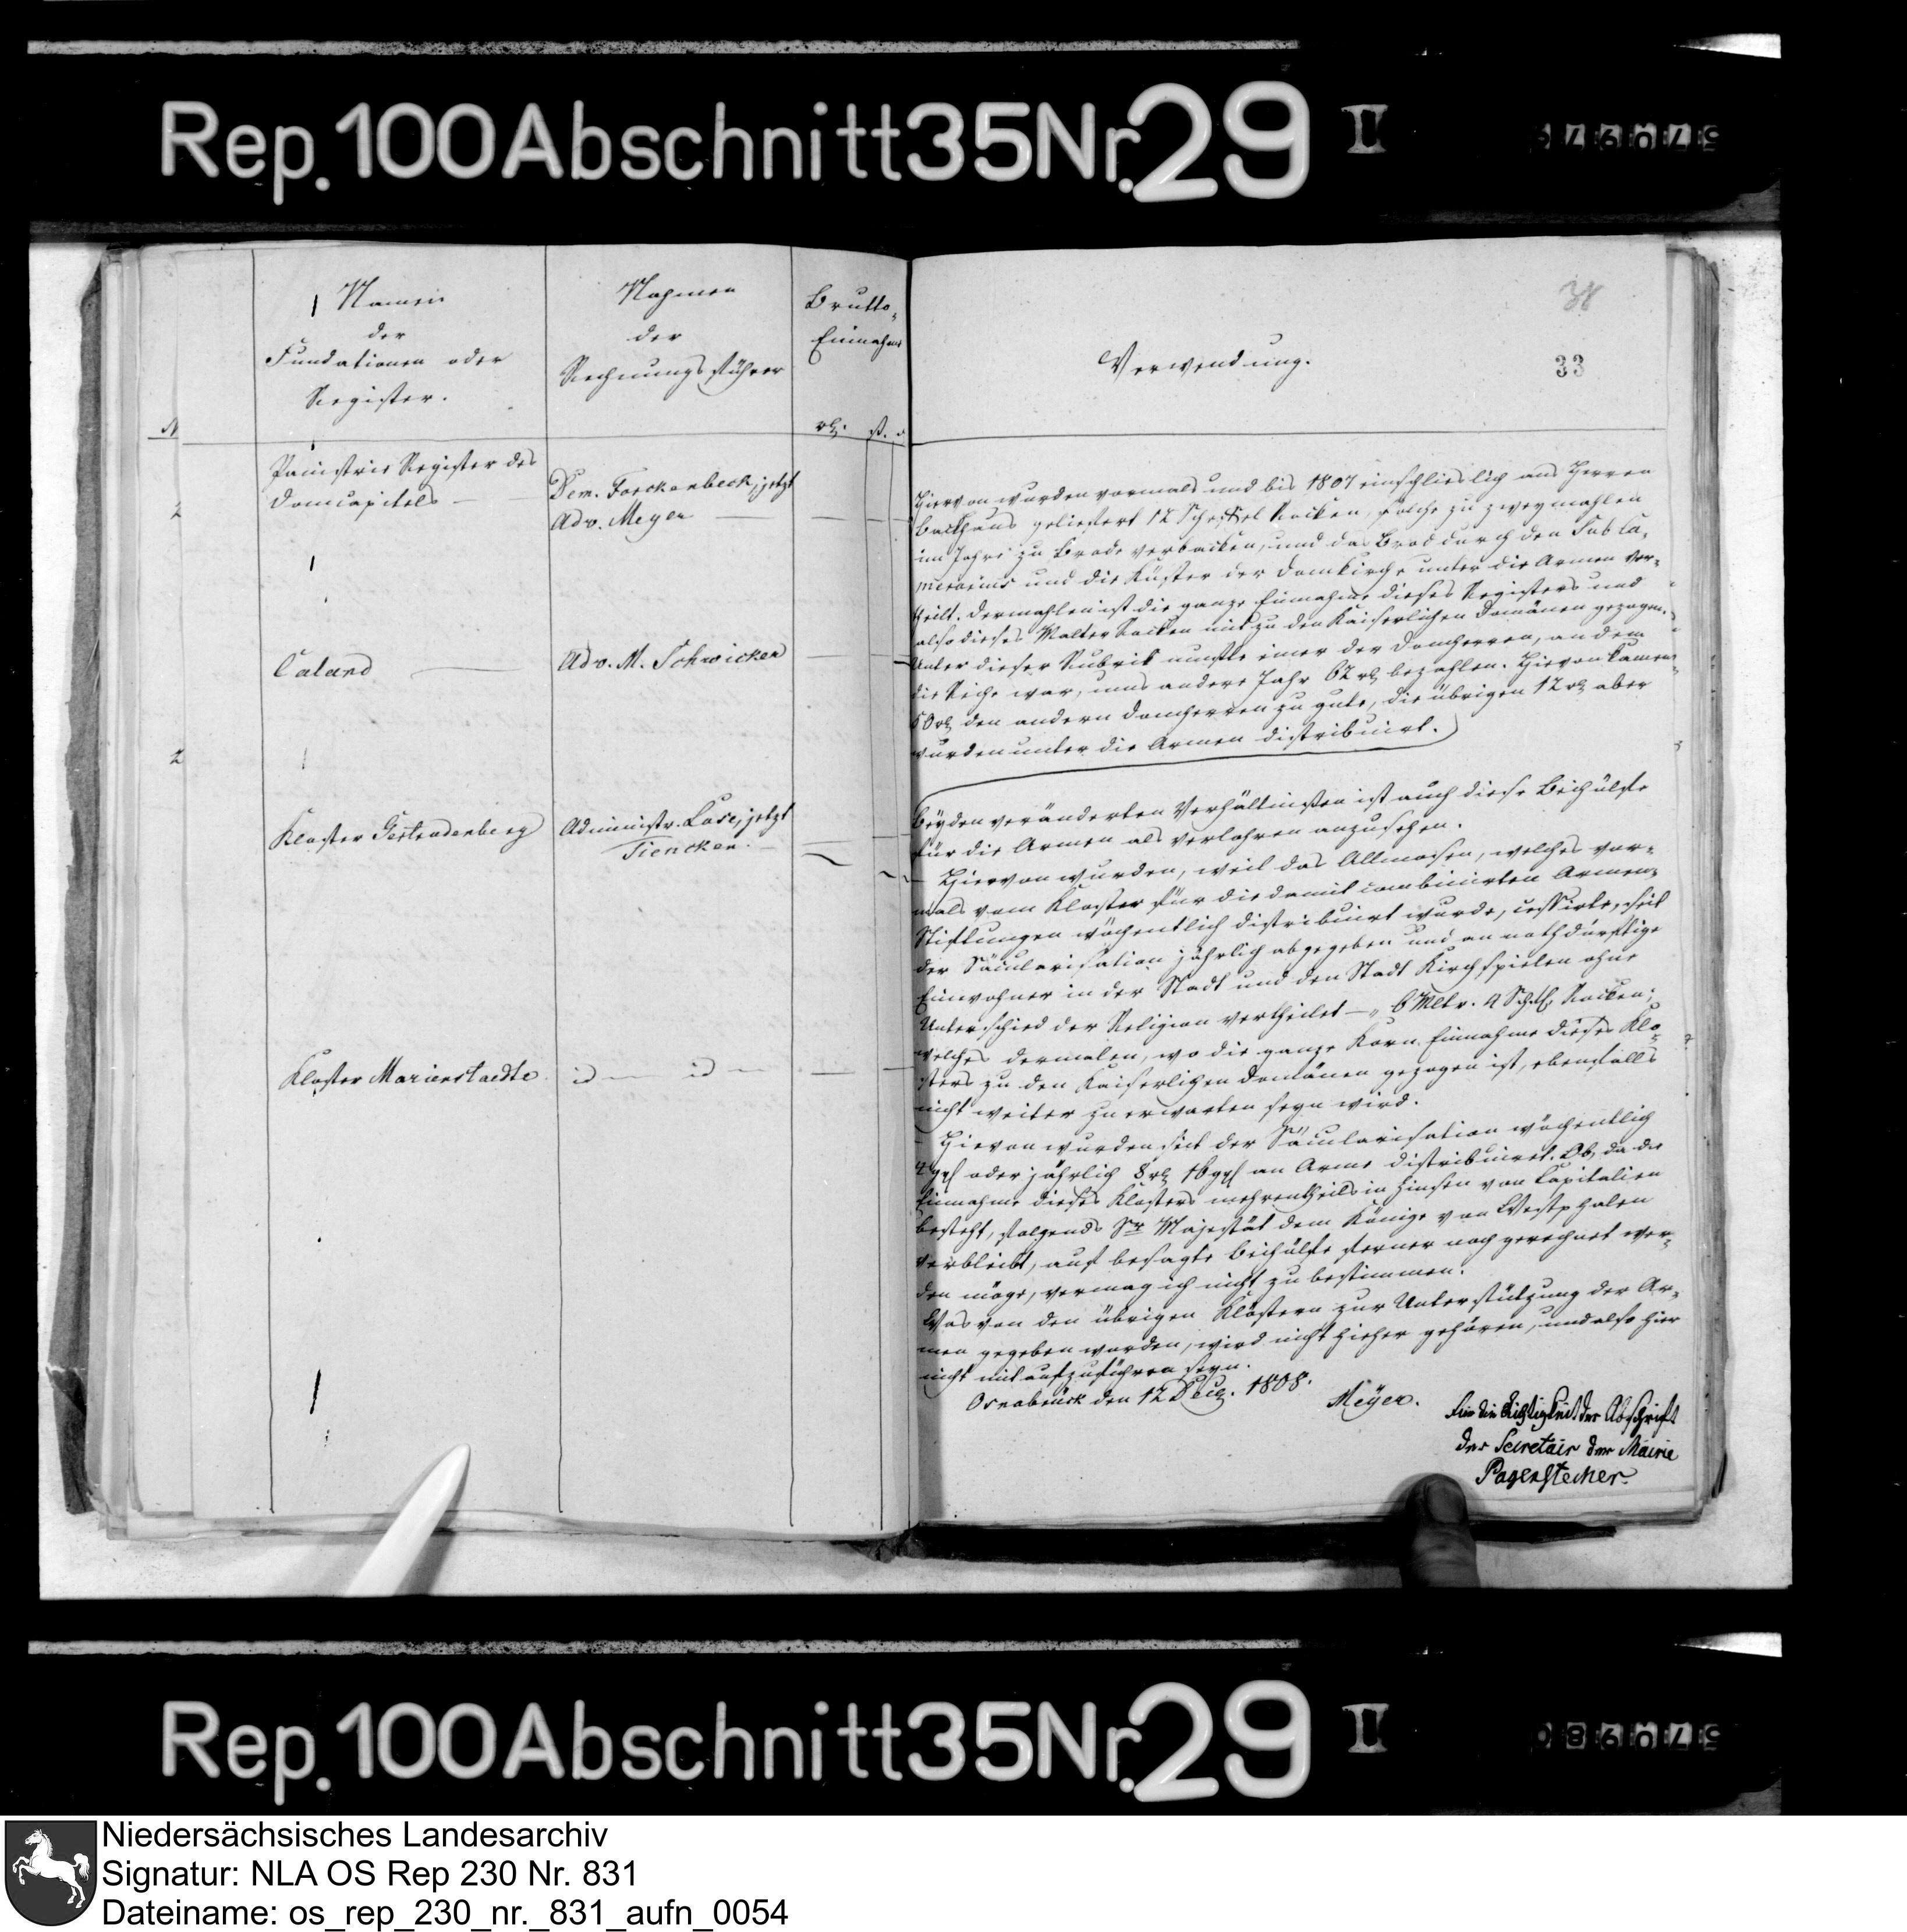 Rep. 100 Abschnitt 35 Nr. 29 II
Namen
der
Fundationen oder
Register.
Nahmen
der
Rechnungsführer
Brutto-
Einnahme
rthlr. ß. d
N
Panistrie Register des
Domcapitels —
Dem. Forckenbeck, jetzt
Adv. Meyer
Caland
Adv. M. Schwicker
Kloster Gertrudenberg
Administr. Lose, jetzt
Tiencken.
Kloster Marienstaedte
id — id —
38
Verwendung.
33
Hiervon wurden vormals und bis 1807 einschlieslich ans Herren
Backhaus geliefert 12 Scheffel Rocken, solche zu zweymahlen
im Jahre zu Brode verbacken, und das Brod durch den Sub Ca-
merarius und die Küster der Domkirche unter die Armen ver-
theilt. Dermahlen ist die ganze Einnahme dieses Registers und
also dieses Malter Rocken mit zu den Kaiserlichen Domänen gezogen.
Unter dieser Rubrik mußte einer der Domherren, an dem
die Reihe war, ums andere Jahr 62 rthlr bezahlen. Hievon kamen
50 rthlr den andern Domherren zu gute, die übrigen 12 rthlr aber
wurden unter die Armen distribuirt.
Bey den veränderten Verhältnißen ist auch diese Beihülfe
für die Armen als verlohren anzusehen.
Hiervon wurden, weil das Allmosen, welches vor-
mals vom Kloster für die damit combinirten Armen-
Stiftungen wöchentlich distribuirt wurde, cessirte, seit
der Säcularisation jährlich abgegeben und an nothdürftige
Einwohner in der Stadt und den Stadt Kirchspielen ohne
Unterschied der Religion vertheilet — „ 6 Mltr. 4 Schfl. Rocken;
welches dermalen, wo die ganze Korn Einnahme dieses Klo-
sters zu den Kaiserlichen Domänen gezogen ist, ebenfalls
nicht weiter zu erwarten seyn wird.
Hievon wurden seit der Säcularisation wöchentlich
4 ggl oder jährlich 8 rthlr 16 ggl an Arme distribuiret. Ob, da die
Einnahme dieses Klosters mehrentheils in Zinsen von Kapitalien
besteht, folgends Sr Majestät dem Könige von Westphalen
verbleibt, auf besagte Beihülfe ferner noch gerechnet wer-
den möge, vermag ich nicht zu bestimmen.
Was von den übrigen Klöstern zur Unterstützung der Ar-
men gegeben worden, wird nicht hieher gehören, und also hier
nicht mit aufzuführen seyn.
Osnabrück den 12 Decz. 1808.
Meyer.
Für die Richtigkeit der Abschrift
der Secretair der Mairie
Pagenstecher.
Rep. 100 Abschnitt 35 Nr. 29 II
Niedersächsisches Landesarchiv
Signatur: NLA OS Rep 230 Nr. 831
Dateiname: os_rep_230_nr._831_aufn_0054